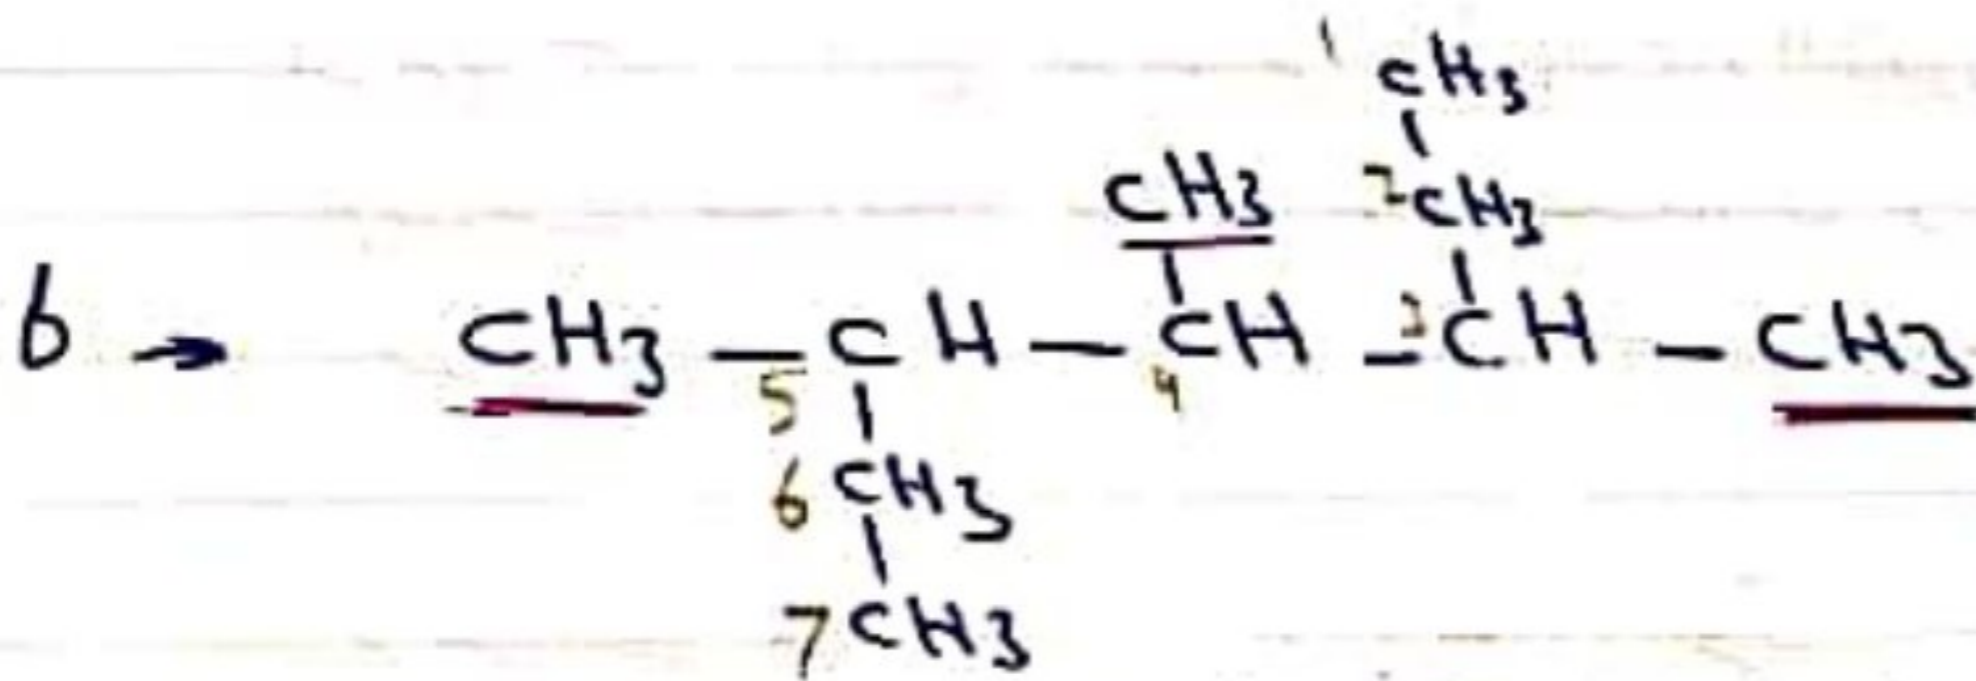 1 CH3
CH3 2 CH3
6 → CH3 — 5 CH — 4 CH — 3 CH — CH3
6 CH3
7 CH3